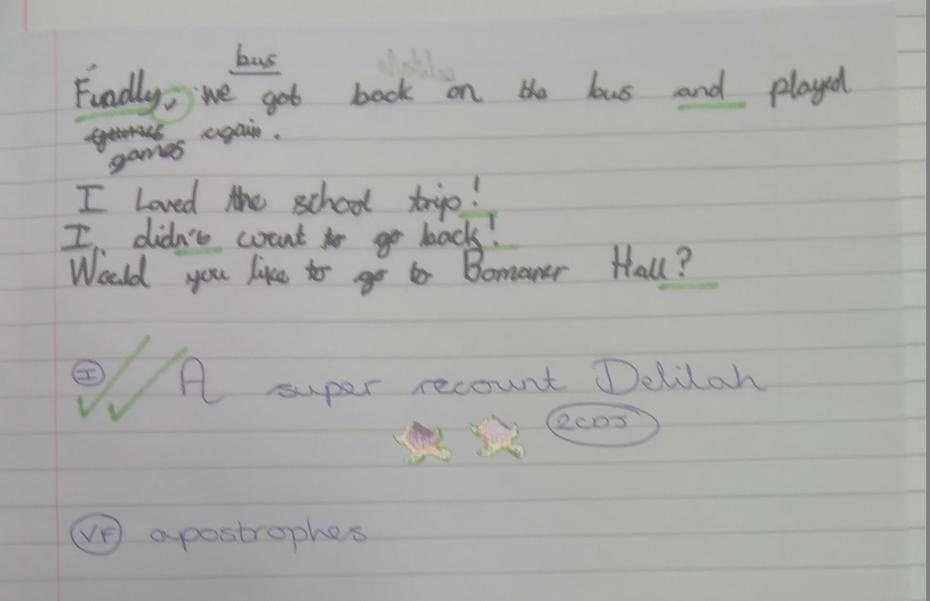 bus
Findly, we got back on the bus and played
games again.
games
I Loved the school trip!
I didn't want to go back!
Would you like to go to Bomaner Hall?
I A super recount Delilah
VF apostrophes